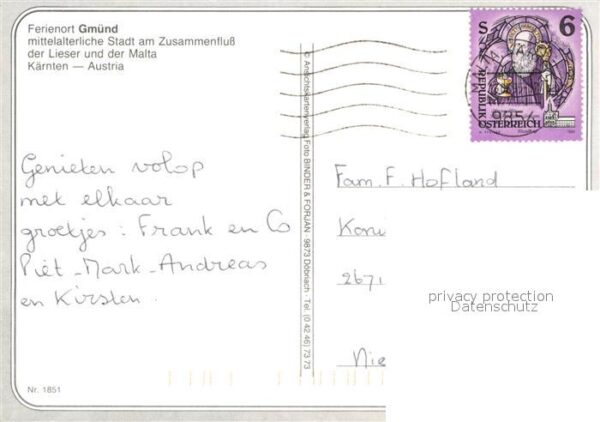 Ferienort Gmünd
mittelalterliche Stadt am Zusammenfluß
der Lieser und der Malta
Kärnten — Austria
Genieten volop
met elkaar
groetjes : Frank en Co
Piet - Mark - Andreas
en Kirsten.
Nr. 1851
© Ansichtskartenverlag Foto BINDER & FORJAN · 9873 Döbriach · Tel. (0 42 46) 73 73
6
REPUBLIK
ÖSTERREICH
9854
Fam. F. Hofland
Koni
2671
Nie
privacy protection
Datenschutz